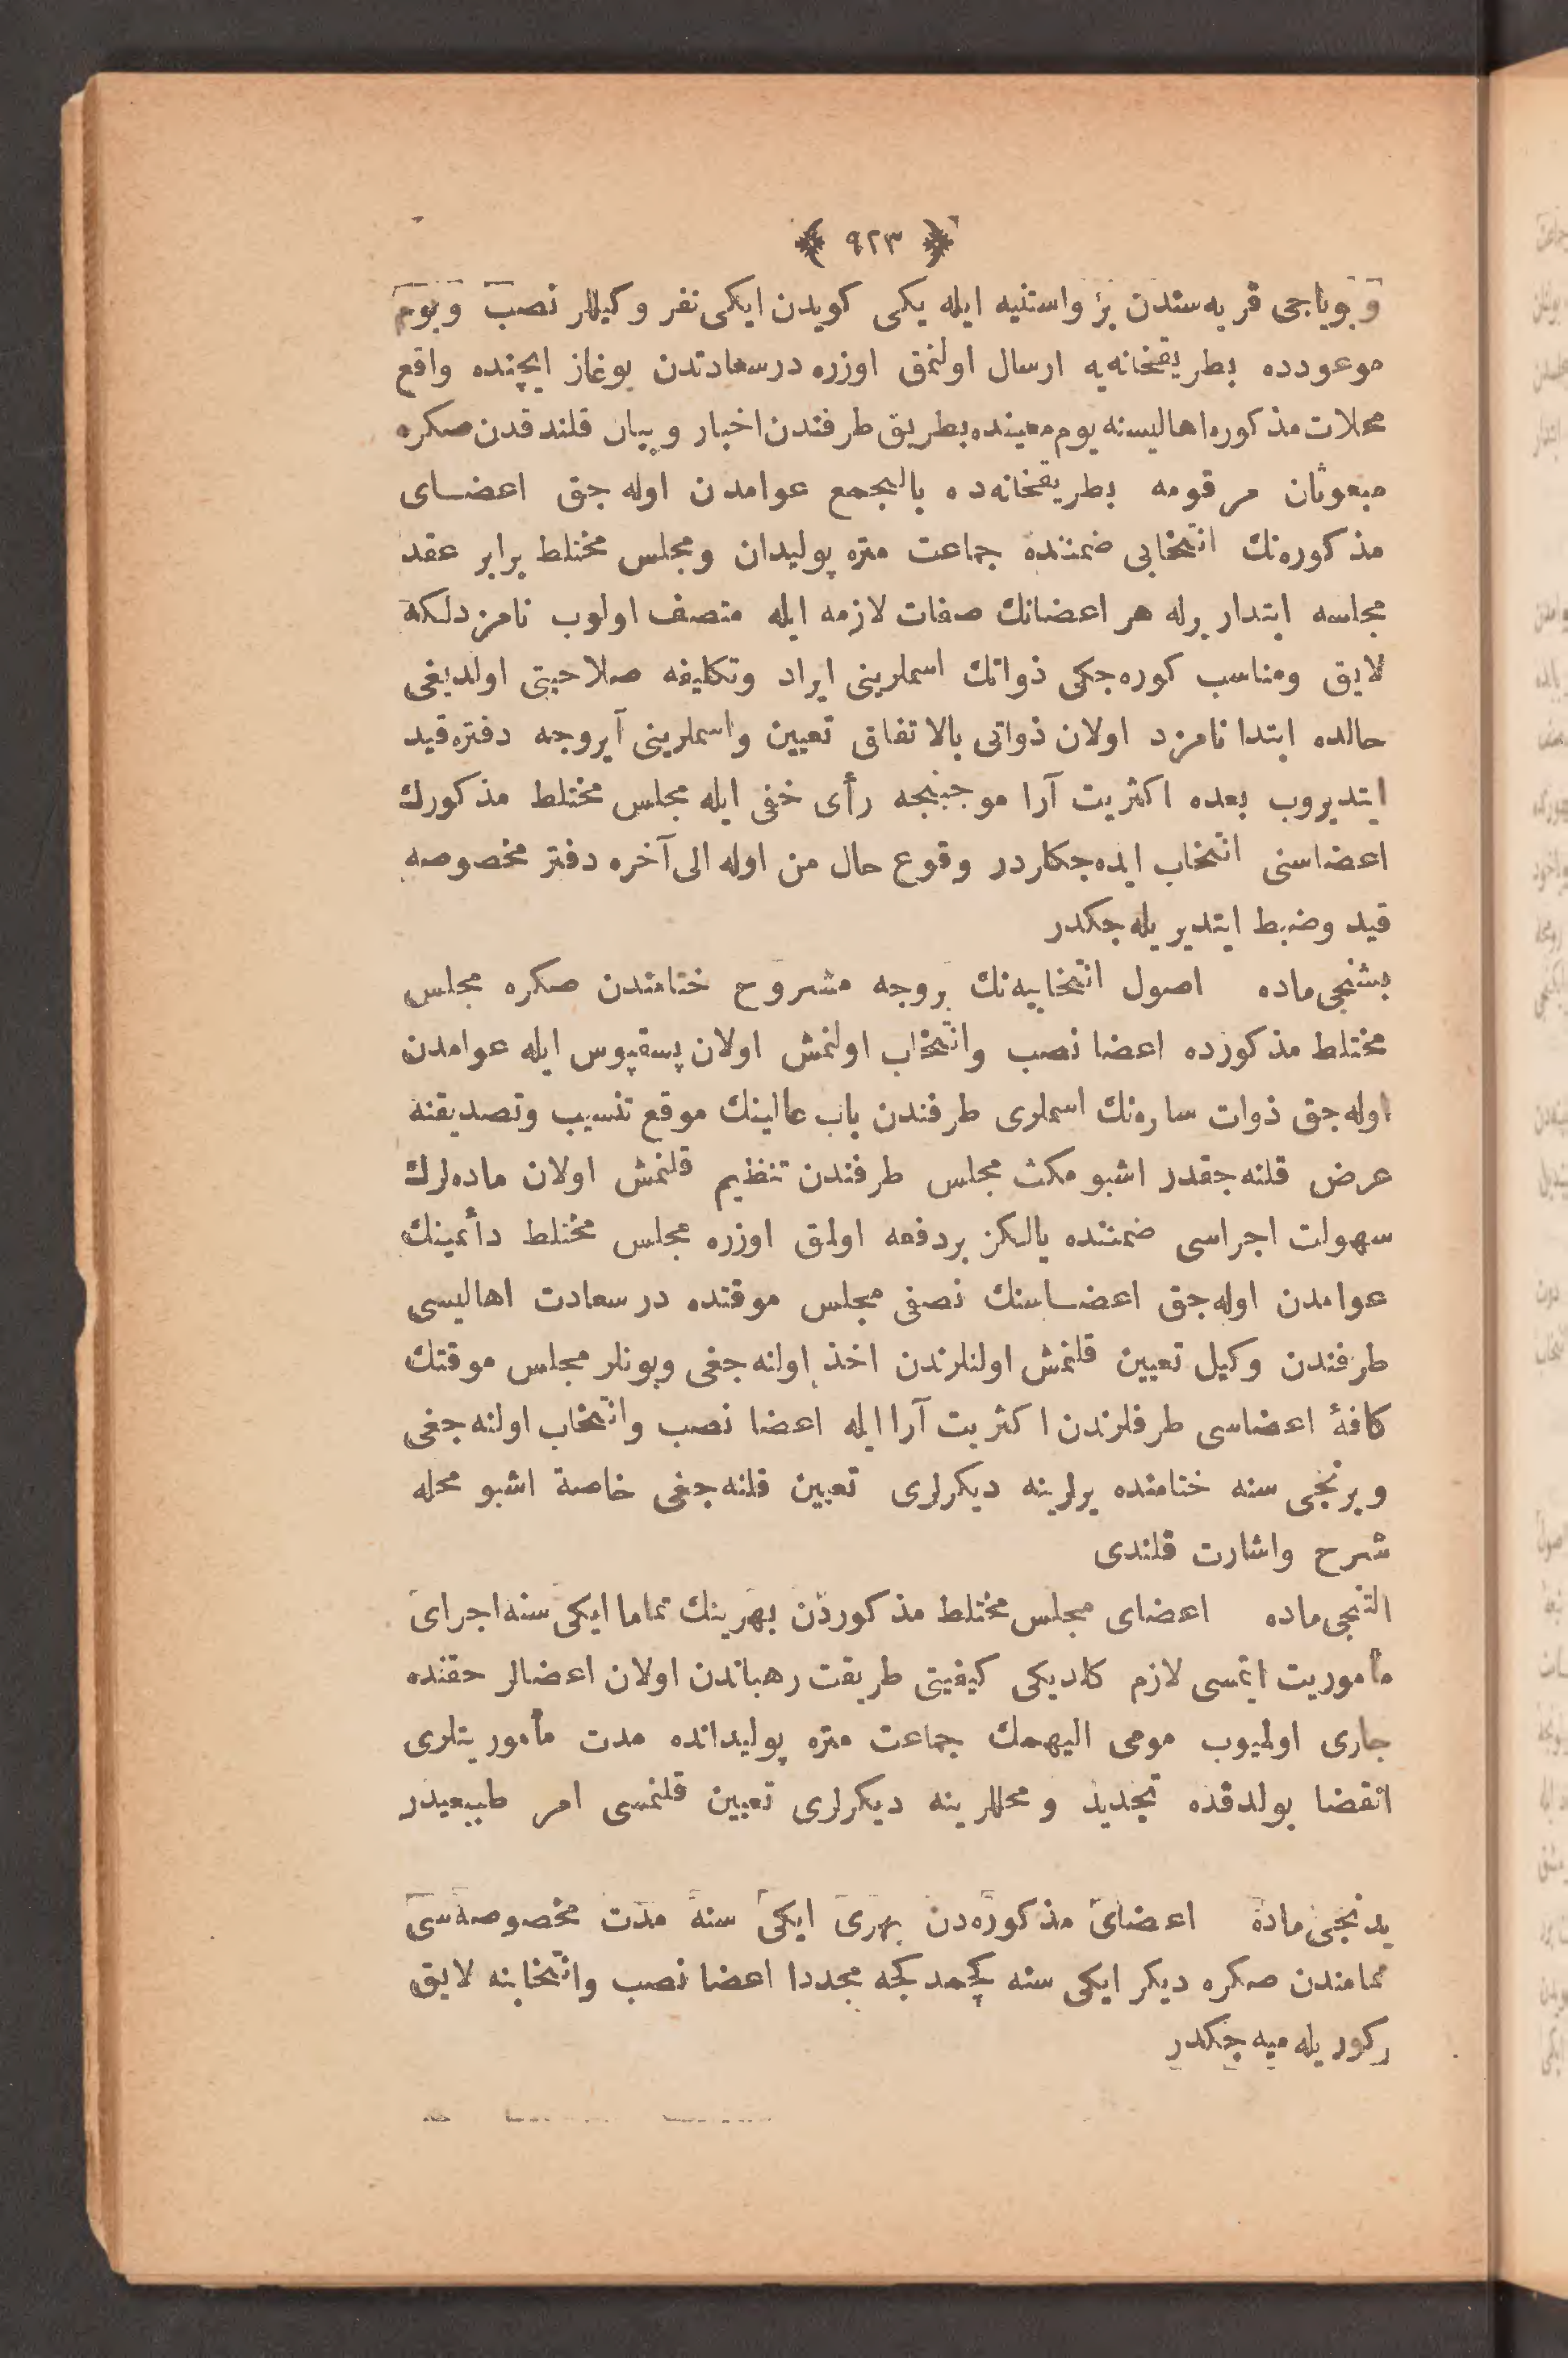 ﴿ ٩٢٣ ﴾
و بویاجی قریه‌سندن بر واستنیه ایله یکی کویدن ایکی نفر وکیللر نصب و یوم
موعودده بطریقخانه‌یه ارسال اولنمق اوزره درسعادتدن بوغاز ایچنده واقع
محلات مذکوره اهالیسنه یوم معینده بطریق طرفندن اخبار و بیان قلندقدن صکره
مبعوثان مرقومه بطریقخانه‌ده بالتجمع عوامدن اوله‌جق اعضای
مذکوره‌نك انتخابی ضمننده جماعت متره پولیدان ومجلس مختلط برابر عقد
مجلسه ابتدار برله هر اعضانك صفات لازمه ایله متصف اولوب نامزدلکه
لایق ومناسب کوره‌جکی ذواتك اسملرینی ایراد وتکلیفه صلاحیتی اولدیغی
حالده ابتدا نامزد اولان ذواتی بالاتفاق تعیین واسملرینی آیروجه دفتره قید
ایتدیروب بعده اکثریت آرا موجبنجه رأی خفی ایله مجلس مختلط مذکورك
اعضاسنی انتخاب ایده‌جکلردر وقوع حال من اوله الی آخره دفتر مخصوصه
قید وضبط ایتدیریله‌جکدر
بشنجی ماده اصول انتخابیه‌نك بروجه مشروح ختامندن صکره مجلس
مختلط مذکورده اعضا نصب وانتخاب اولنمش اولان پسقپوس ایله عوامدن
اوله‌جق ذوات سارەنك اسملری طرفندن باب عالینك موقع تنسیب وتصدیقنه
عرض قلنه‌جقدر اشبو مکث مجلس طرفندن تنظیم قلنمش اولان ماده‌لرك
سهولت اجراسی ضمننده یالکز بردفعه اولمق اوزره مجلس مختلط دائمینك
عوامدن اوله‌جق اعضاسنك نصفی مجلس موقتده درسعادت اهالیسی
طرفندن وکیل تعیین قلنمش اولنلرندن اخذ اولنه‌جغی وبونلر مجلس موقتك
کافهٔ اعضاسی طرفلرندن اکثریت آرا ایله اعضا نصب وانتخاب اولنه‌جغی
وبرنجی سنه ختامنده یرلرینه دیکرلری تعیین قلنه‌جغی خاصة اشبو محله
شرح واشارت قلندی
التنجی ماده اعضای مجلس مختلط مذکوردن بهرینك تماما ایکی سنه اجرای
مأموریت ایتمسی لازم کلدیکی کیفیتی طریقت رهباندن اولان اعضالر حقنده
جاری اولمیوب مومی الیهمك جماعت متره پولیدانده مدت مأموریتلری
انقضا بولدقده تجدید و محللرینه دیکرلری تعیین قلنمسی امر طبیعیدر
یدنجی ماده اعضای مذکوره‌دن بهری ایکی سنه مدت مخصوصه‌سی
تمامندن صکره دیکر ایکی سنه کچمدکجه مجددا اعضا نصب وانتخابنه لایق
کوریله‌میه‌جکدر